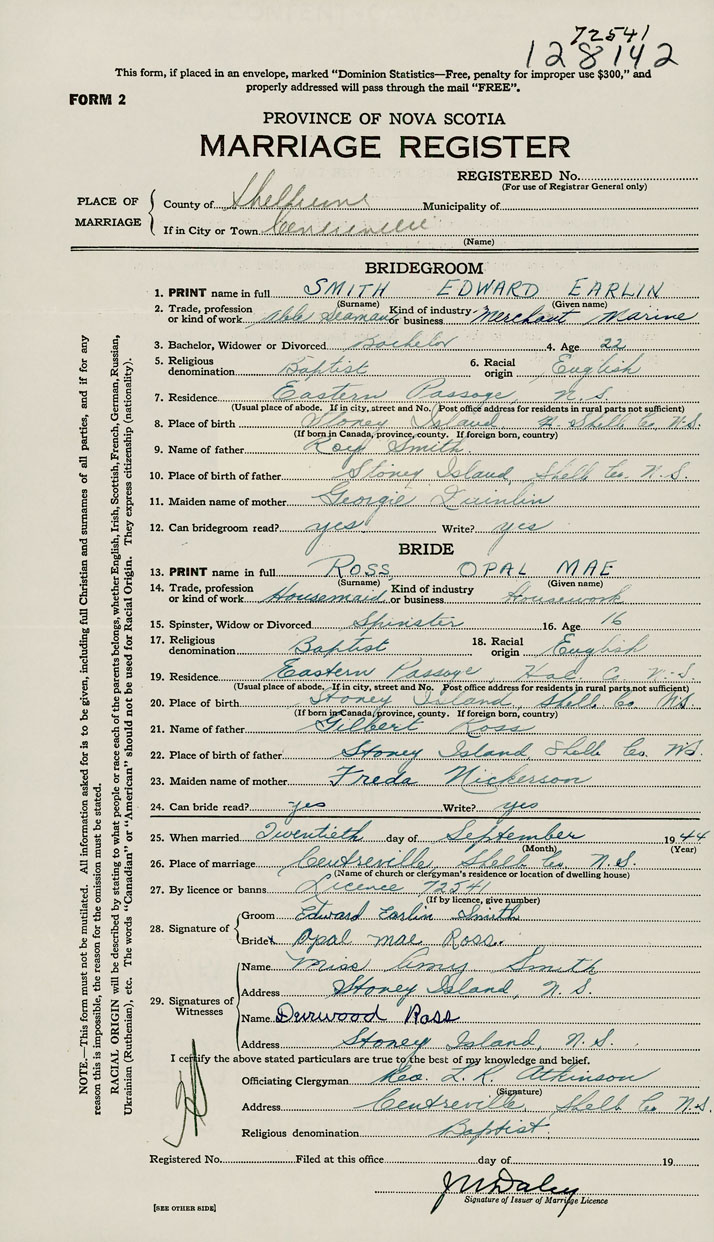 72541
128142
This form, if placed in an envelope, marked "Dominion Statistics—Free, penalty for improper use $300," and
properly addressed will pass through the mail "FREE".
FORM 2
PROVINCE OF NOVA SCOTIA
MARRIAGE REGISTER
REGISTERED No.
(For use of Registrar General only)
PLACE OF MARRIAGE
County of Shelburne Municipality of
If in City or Town Centreville
(Name)
BRIDEGROOM
1. PRINT name in full SMITH EDWARD EARLIN
(Surname) (Given name)
2. Trade, profession or kind of work Able Seaman Kind of industry or business Merchant Marine
3. Bachelor, Widower or Divorced Bachelor 4. Age 22
5. Religious denomination Baptist 6. Racial origin English
7. Residence Eastern Passage, N.S.
(Usual place of abode. If in city, street and No. Post office address for residents in rural parts not sufficient)
8. Place of birth Stoney Island N. Shelb Co. N.S.
(If born in Canada, province, county. If foreign born, country)
9. Name of father Roy Smith
10. Place of birth of father Stoney Island, Shelb Co. N.S.
11. Maiden name of mother Georgie Quinlin
12. Can bridegroom read? yes Write? yes
BRIDE
13. PRINT name in full ROSS OPAL MAE
(Surname) (Given name)
14. Trade, profession or kind of work Housemaid Kind of industry or business Housework
15. Spinster, Widow or Divorced Spinster 16. Age 16
17. Religious denomination Baptist 18. Racial origin English
19. Residence Eastern Passage, Hal. Co. N.S.
(Usual place of abode. If in city, street and No. Post office address for residents in rural parts not sufficient)
20. Place of birth Stoney Island, Shelb Co. N.S.
(If born in Canada, province, county. If foreign born, country)
21. Name of father Gilbert Ross
22. Place of birth of father Stoney Island Shelb Co. N.S.
23. Maiden name of mother Freda Nickerson
24. Can bride read? yes Write? yes
25. When married Twentieth day of September 1944
(Month) (Year)
26. Place of marriage Centreville Shelb Co. N.S.
(Name of church or clergyman's residence or location of dwelling house)
27. By licence or banns Licence 72541
(If by licence, give number)
28. Signature of
Groom Edward Earlin Smith
Bride x Opal Mae Ross.
29. Signatures of Witnesses
Name Miss Amy Smith
Address Stoney Island, N.S.
Name Durwood Ross
Address Stoney Island, N.S.
I certify the above stated particulars are true to the best of my knowledge and belief.
Officiating Clergyman L. R. Atkinson
(Signature)
Address Centreville, Shelb Co. N.S.
Religious denomination Baptist.
Registered No. Filed at this office day of 19
J M Daley
Signature of Issuer of Marriage Licence
[SEE OTHER SIDE]
NOTE.—This form must not be mutilated. All information asked for is to be given, including full Christian and surnames of all parties, and if for any
reason this is impossible, the reason for the omission must be stated.
RACIAL ORIGIN will be described by stating to what people or race each of the parents belongs, whether English, Irish, Scottish, French, German, Russian,
Ukrainian (Ruthenian), etc. The words "Canadian" or "American" should not be used for Racial Origin. They express citizenship (nationality).